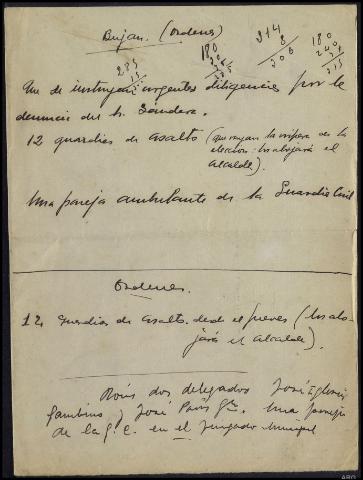 Bujan. (Ordenes)
314
8
306
180
180
240
215
285
15
Que se instruyan urgentes diligencias por la
denuncia del Sr. Sández.
12 guardias de asalto (que vayan la víspera de la
elección. Los alojará el
alcalde).
Una pareja ambulante de la Guardia Civil
Ordenes.
12 guardias de asalto desde el jueves (los alo-
jará el alcalde).
dos delegados José Iglesias
Gambino y José París Gª. Una pareja
de la G. C. en el Juzgado Municipal